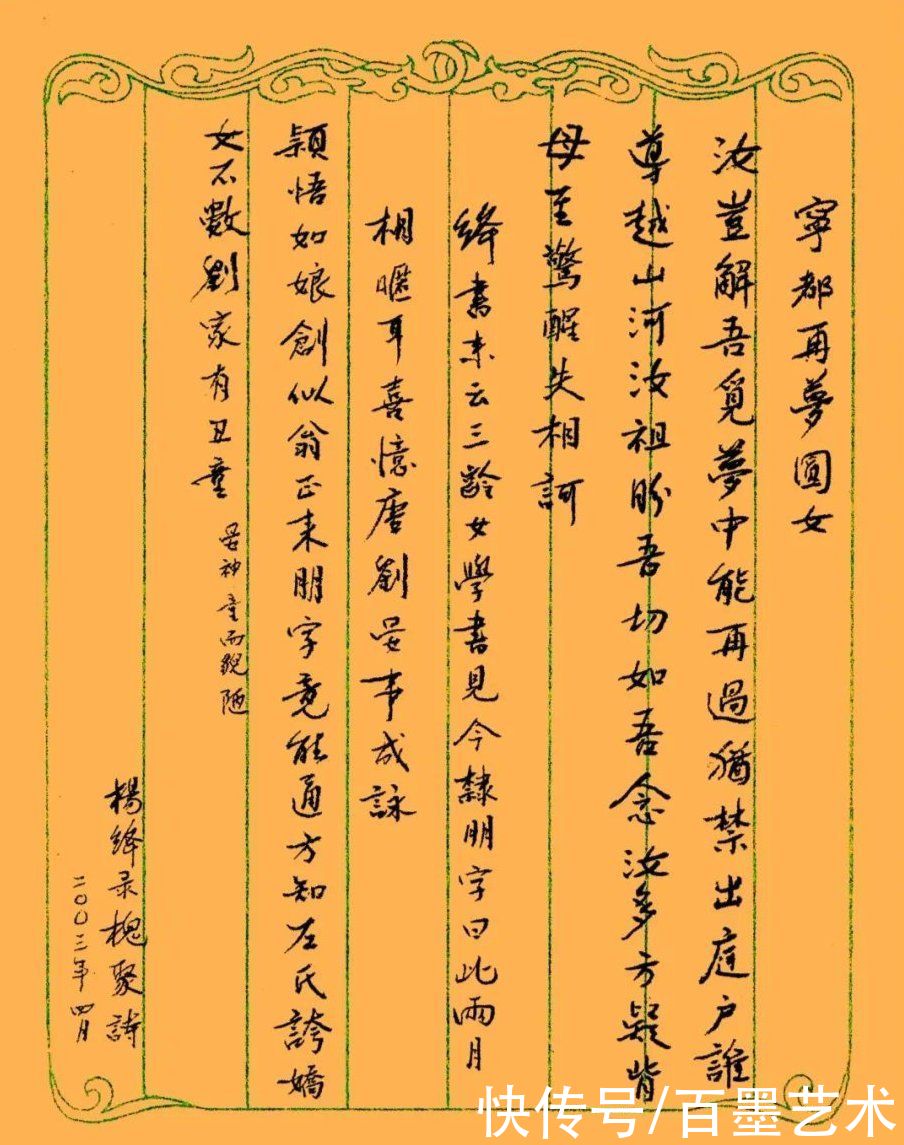 寧都再夢圓女
汝豈解吾覓夢中能再過猶禁出庭户誰
導越山河汝祖盼吾切如吾念汝多方疑背
母至驚醒失相訶
絳書来云三齡女學書見今隸朋字曰此兩月
相暱耳喜憶唐劉晏事成詠
穎悟如娘創似翁正来朋字竟能通方知左氏誇嬌
女不數劉家有丑童
晏神童而貌陋
楊絳录槐聚詩
二００三年四月
快传号/百墨艺术